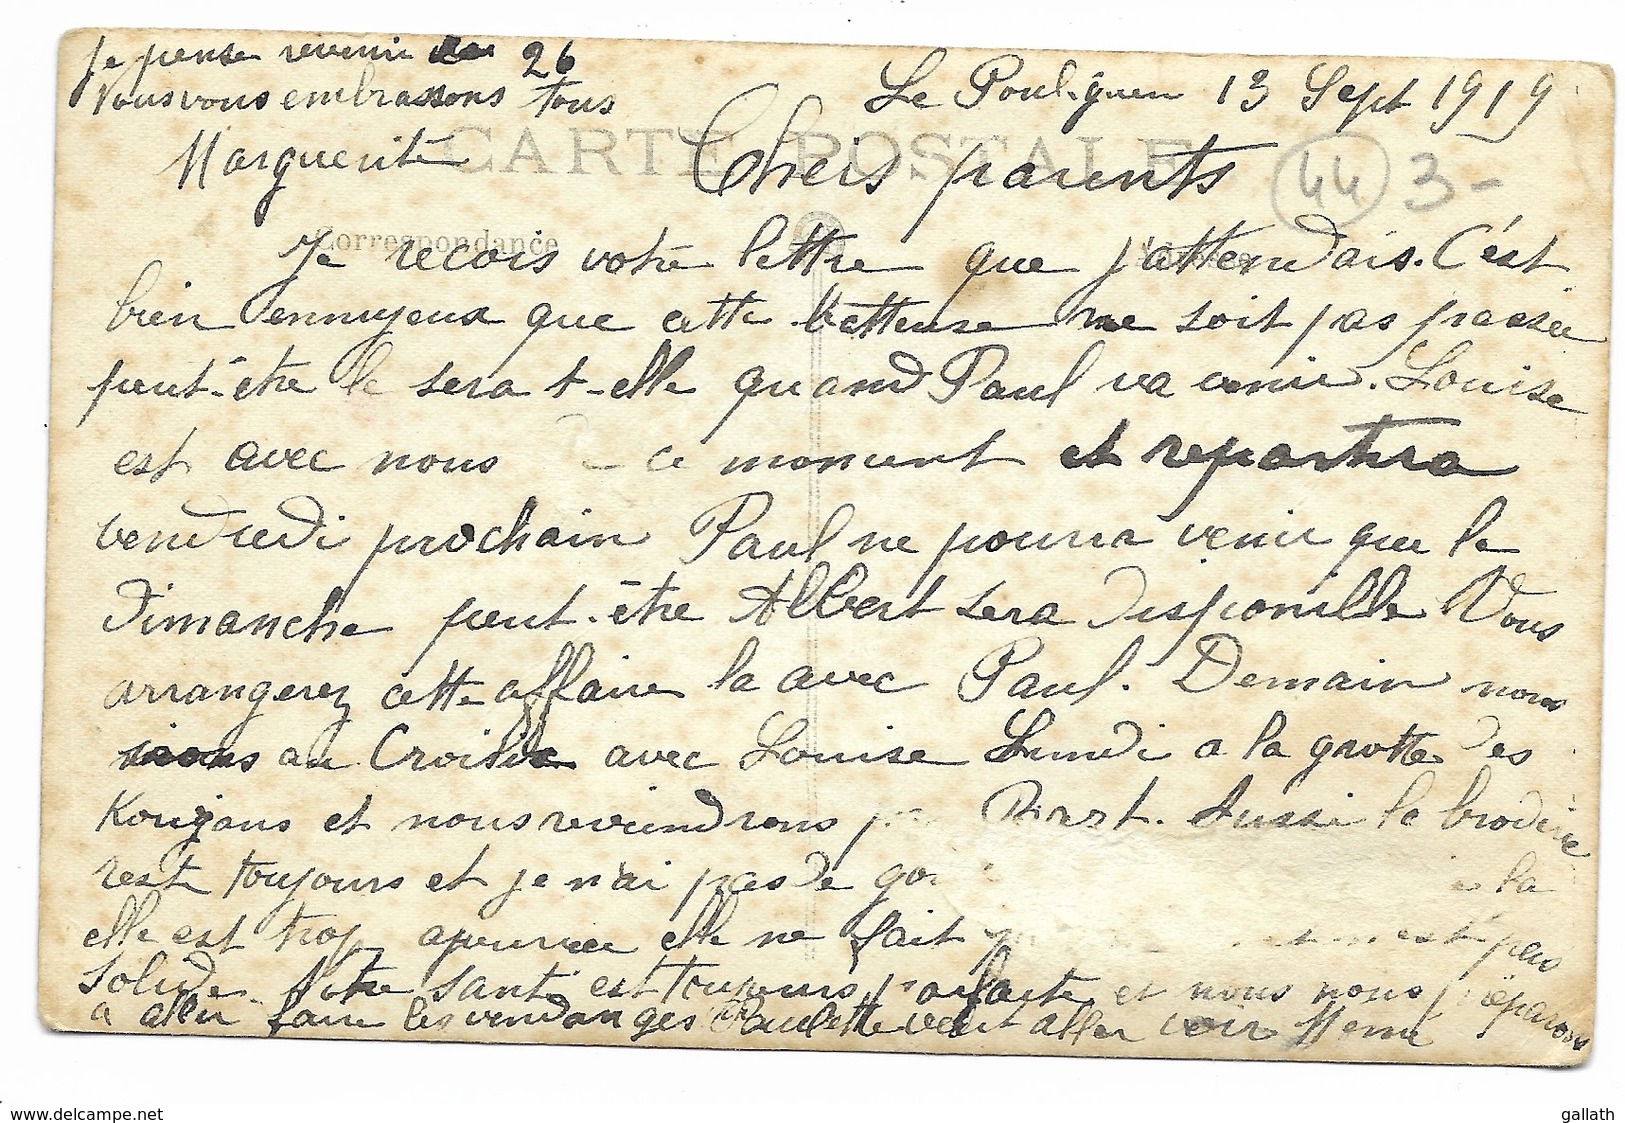 Je pense revenir le 26
Nous vous embrassons tous
Marguerite
Le Pouliguen 13 Sept 1919
CARTE POSTALE
Chers parents
44 3-
Correspondance
Je recois votre lettre que j'attendais. C'est
bien ennuyeux que cette batteuse ne soit pas passée
peut-être le sera t-elle quand Paul va venir. Louise
est avec nous ce moment et repartira
vendredi prochain Paul ne pourra venir que le
dimanche peut-être Albert sera disponible Vous
arrangerez cette affaire la avec Paul. Demain nous
irons au Croisic avec Louise Lundi a la grotte des
Korigans et nous reviendrons par Aussi la broderie
rest toujours et je n'ai pas de la
elle est trop elle ne fait n'est pas
solide. Notre santé est toujours parfaite et nous nous préparons
a aller faire les vendanges Paulette veut aller voir Mémé
gallath
www.delcampe.net